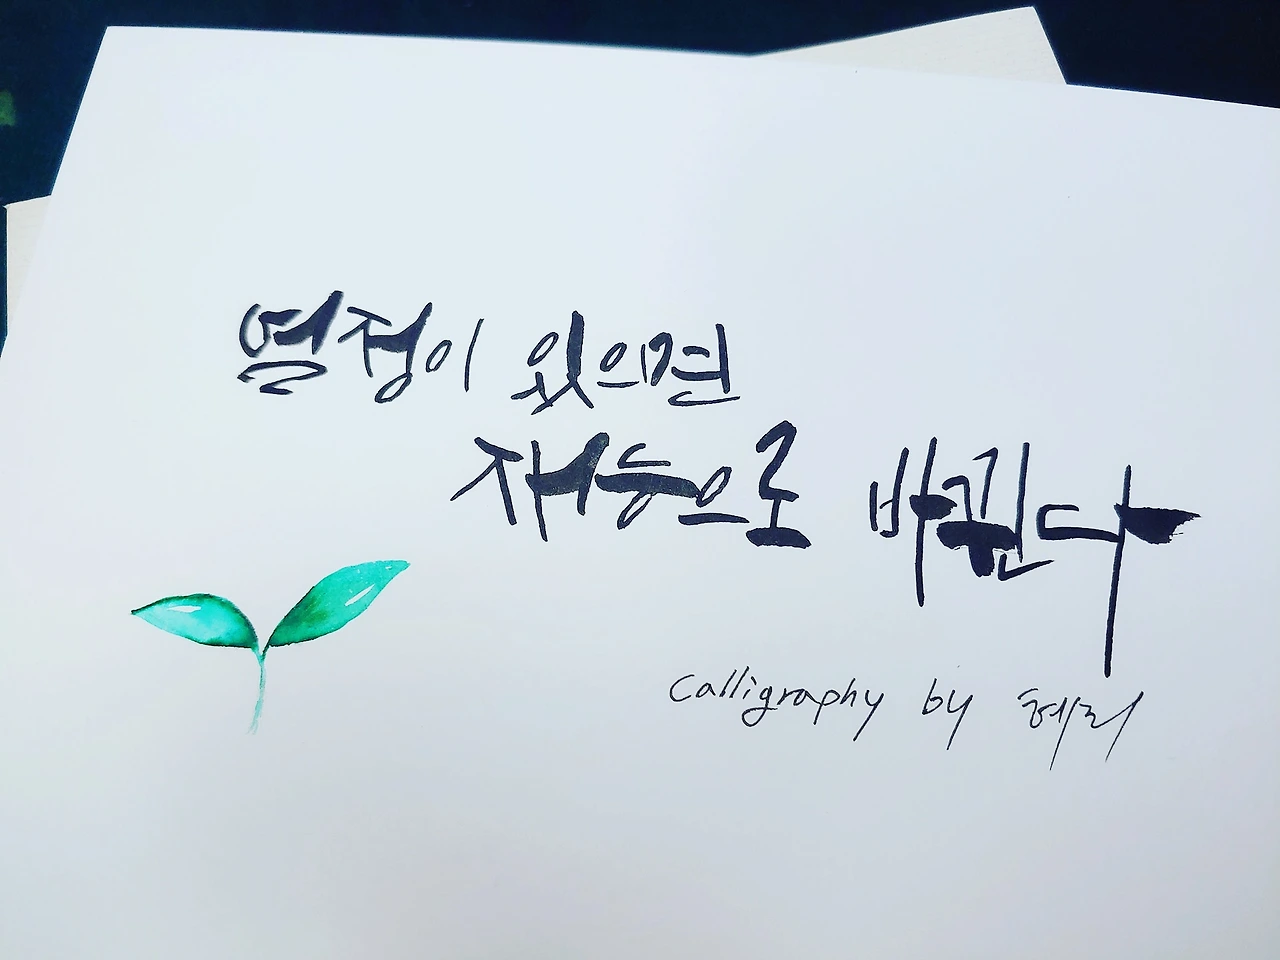 열정이 있으면
재능으로 바뀐다
Calligraphy by 혜리